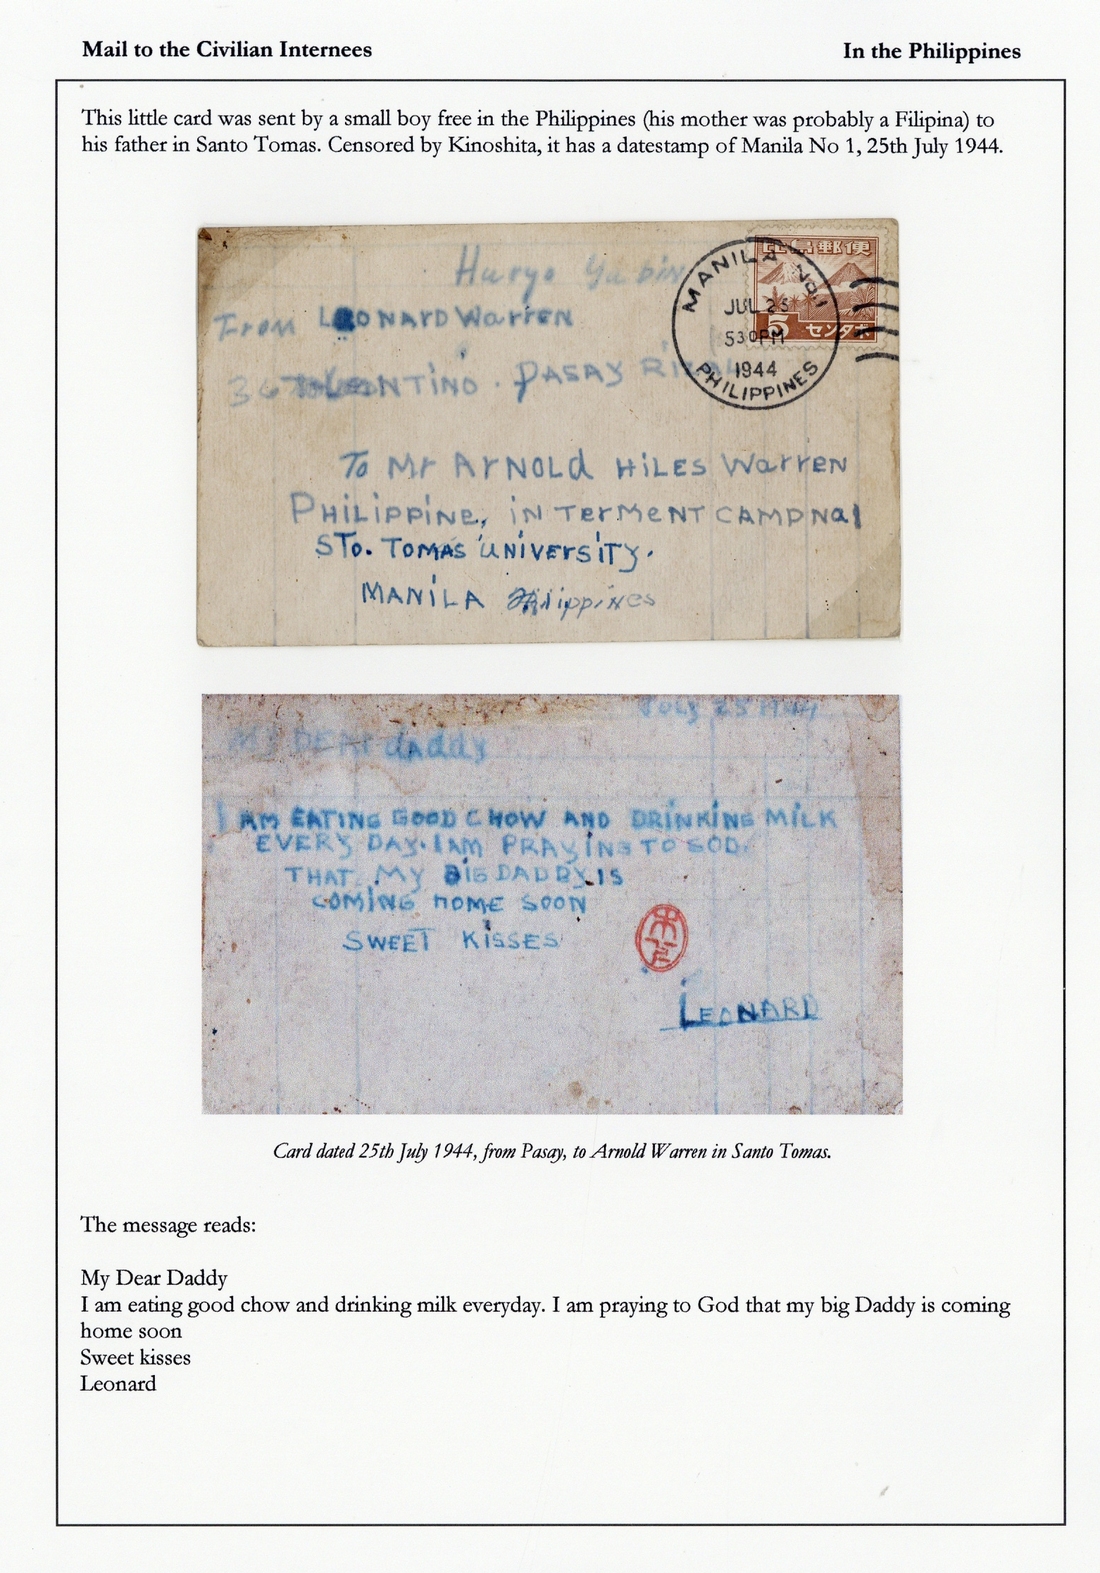 Mail to the Civilian Internees
In the Philippines
This little card was sent by a small boy free in the Philippines (his mother was probably a Filipina) to
his father in Santo Tomas. Censored by Kinoshita, it has a datestamp of Manila No 1, 25th July 1944.
Huryo Yubin
比島郵便
5 センタボ
MANILA No.1
JUL 25
530PM
1944
PHILIPPINES
From LEONARD Warren
PASAY
To Mr ARNOLd HiLES WarrEN
PHiLiPPiNE, iN TErMENT CAMP
STo. TOMAS UNiVErSiTy.
MANiLA Philippines
JULY 25 1944
MY DEAr daddy
I AM EATING GOOD CHOW AND DRiNKiNG MiLK
EVERY DAY. I AM PRAYiNG TO GOD.
THAT MY BIG DADDY IS
COMiNG HOME SOON
SWEET KiSSES
LEONARD
Card dated 25th July 1944, from Pasay, to Arnold Warren in Santo Tomas.
The message reads:
My Dear Daddy
I am eating good chow and drinking milk everyday. I am praying to God that my big Daddy is coming
home soon
Sweet kisses
Leonard